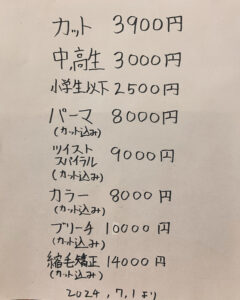 カット 3900円
中,高生 3000円
小学生以下 2500円
パーマ 8000円
(カット込み)
ツイスト
スパイラル 9000円
(カット込み)
カラー 8000円
(カット込み)
ブリーチ 10000円
(カット込み)
縮毛矯正 14000円
(カット込み)
2024,7.1より